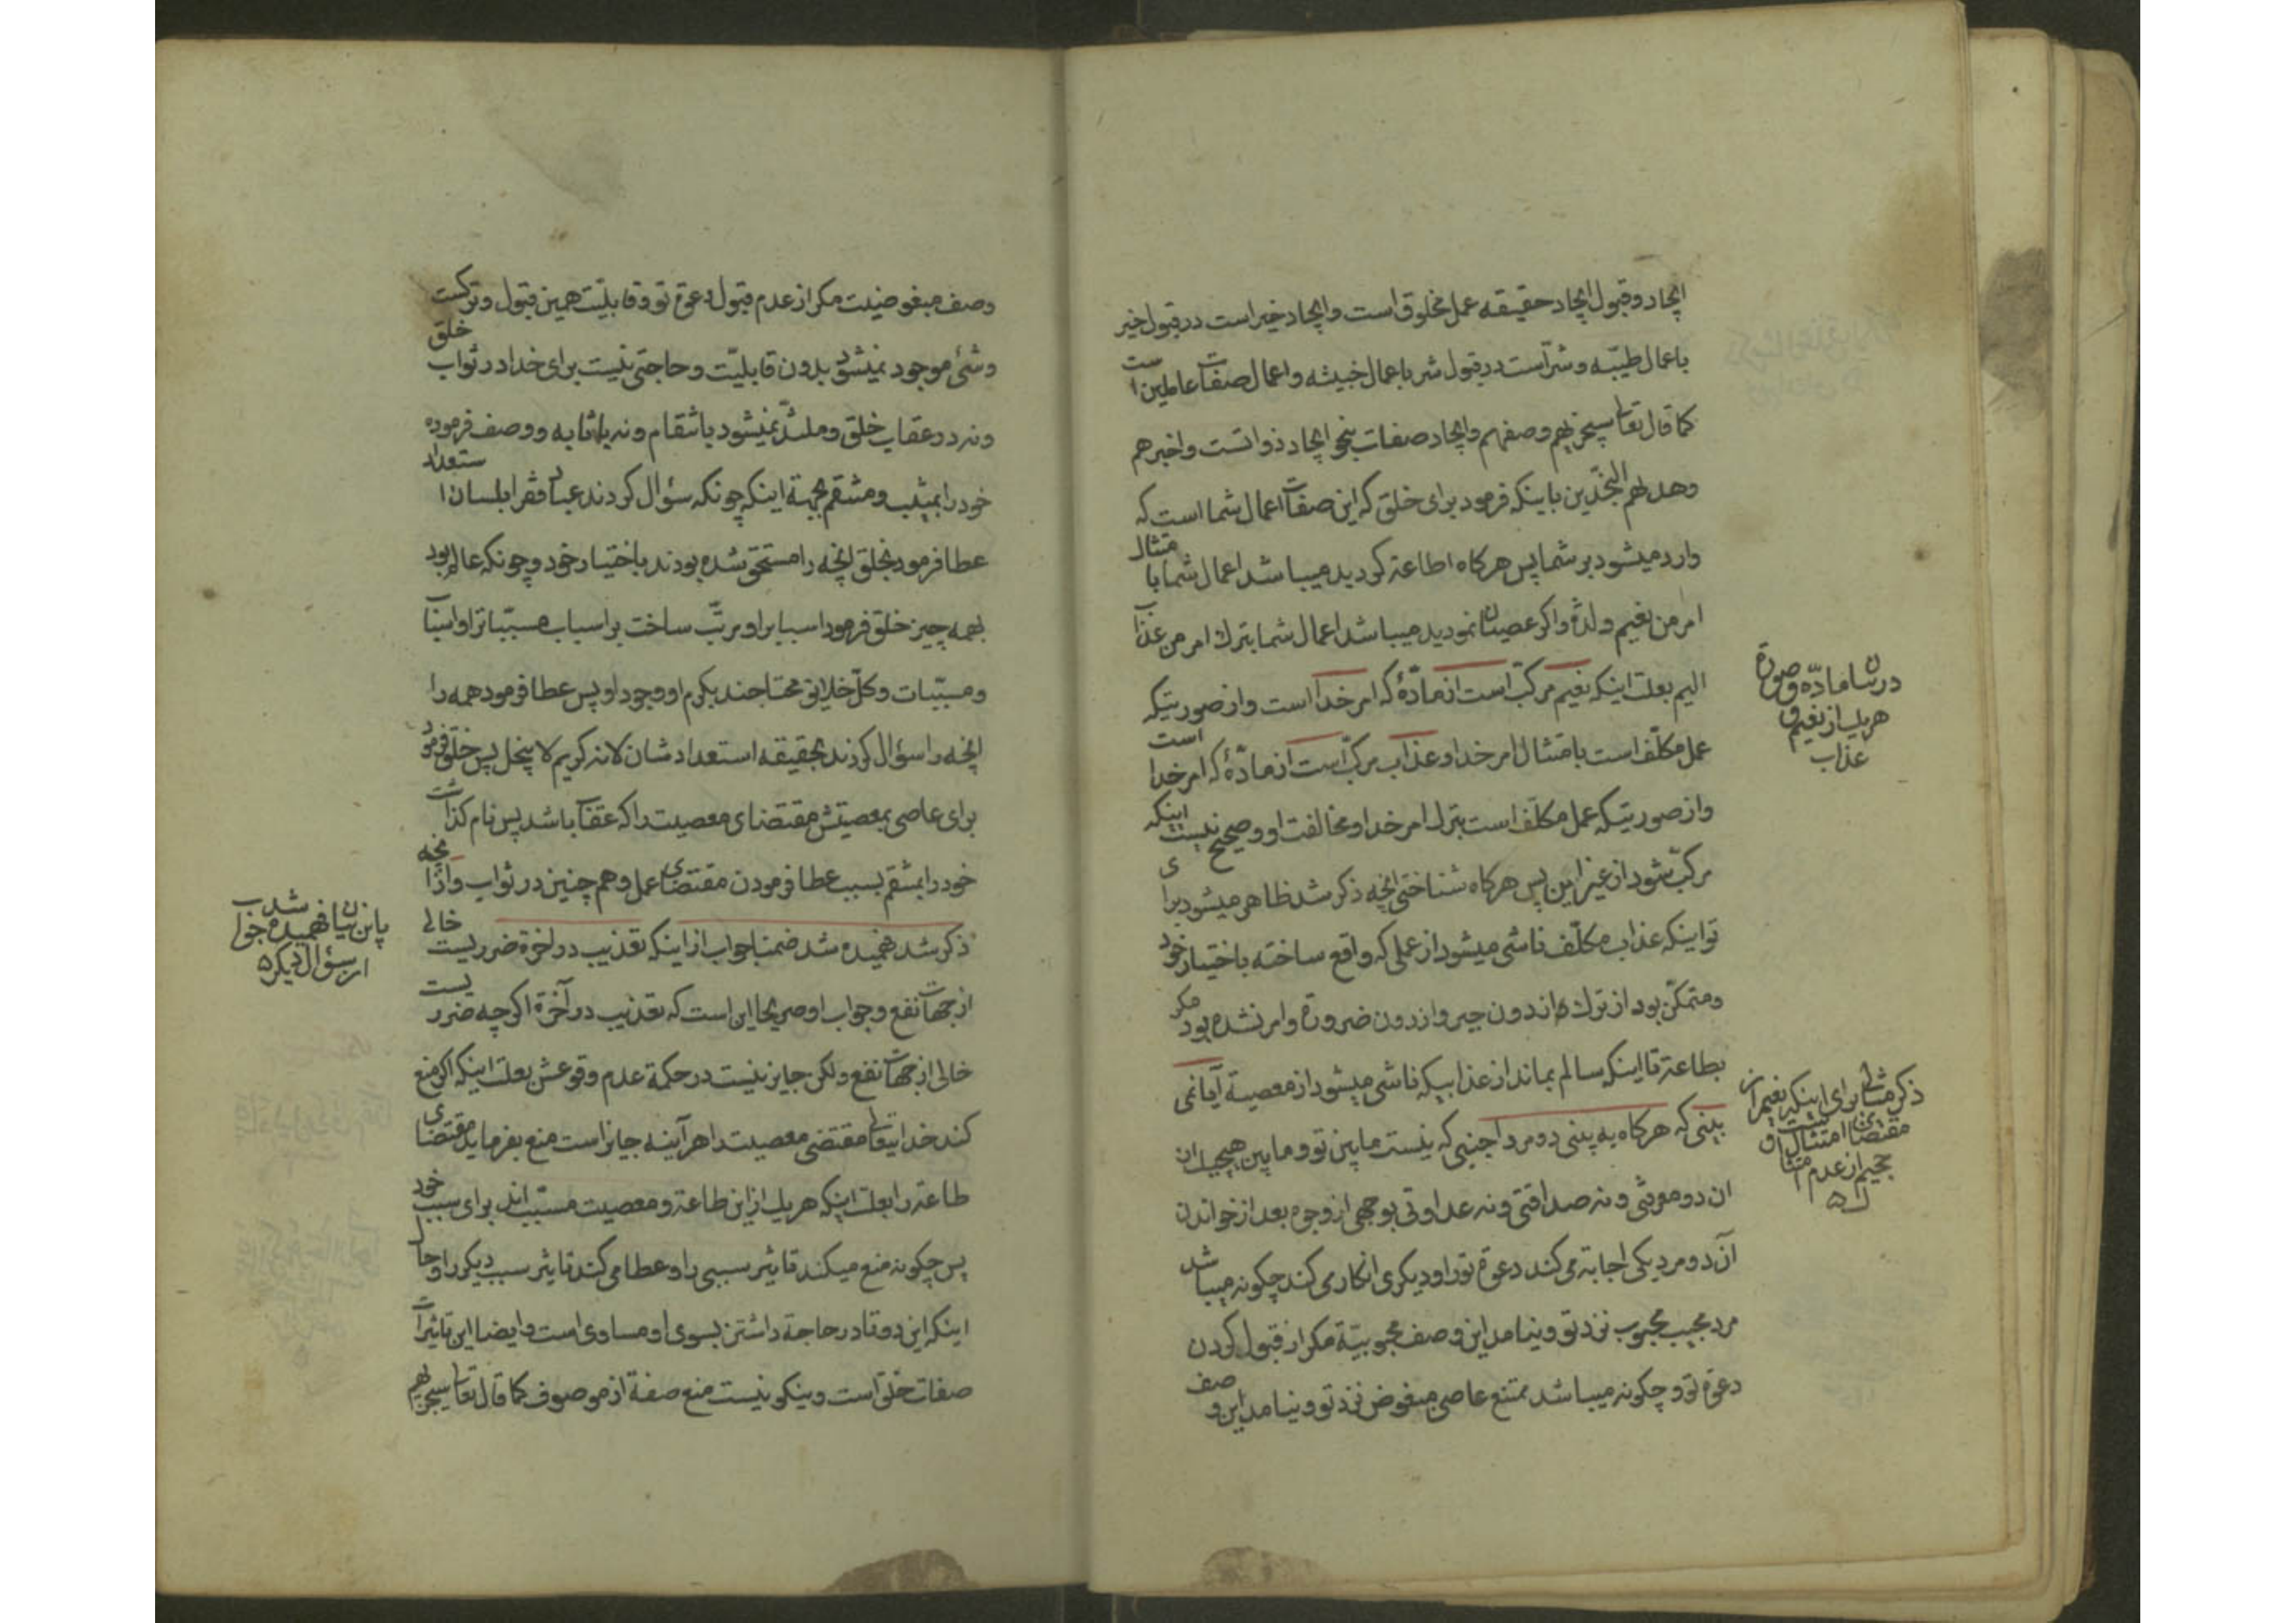 ایجاد و قبول ایجاد حقیقه عمل مخلوق است و ایجاد خیر است در قبول خیر
باعمال طیّبه و شرّ است در قبول شر باعمال خبیثه و اعمال صفات عاملین است
کما قال تعالی سیجزیهم وصفهم و ایجاد صفات بنحو ایجاد ذواتست و اخبرهم
وهدیهم النجدین باینکه فرمود برای خلق که این صفات اعمال شما است که
وارد میشود بر شما پس هرکاه اطاعة کردید میباشد اعمال شما بامتثال
امر من نعیم و لذة و اکر عصیان نمودید میباشد اعمال شما بترک امر من عذاب
الیم بعلت اینکه نعیم مرکب است از مادّهٔ که امر خدا است و از صورتیکه
عمل مکلّف است بامتثال امر خدا و عذاب مرکّب است از مادّهٔ که امر خدا است
و از صورتیکه عمل مکلّف است بترک امر خدا و مخالفت او و صحیح نیست اینکه
مرکّب شود از غیر این پس هرکاه شناختی انچه ذکر شد ظاهر میشود برای
تو اینکه عذاب مکلّف ناشی میشود از عملی که واقع ساخته باختیار خود
و متمکّن بود از ترک ان بدون جبر و از دون ضرورة و امر نشده بود مکر
بطاعة تا اینکه سالم بماند از عذابیکه ناشی میشود از معصیة آیا نمی
بینی که هرکاه به بینی دو مرد اجنبی که نیست مابین تو و مابین هیچیک ان
ان دو معرفتی و نه صداقتی و نه عداوتی بوجهی از وجوه بعد از خواندن
آن دو مرد یکی اجابة می کند دعوة تو را و دیکری انکار می کند چکونه میباشد
مرد مجیب محبوب نزد تو و نیامد این وصف محبوبیّة مکر از قبول کردن
دعوة تو و چکونه میباشد ممتنع عاصی مبغوض نزد تو و نیامد این وصف
در بیان مادّه و صورة
هریک از نعیم و
عذاب
ذکر مثالی برای اینکه نعیم از
مقتضای امتثالست و
جحیم از عدم امتثال
وصف مبغوضیت مکر از عدم قبول دعوة تو و قابلیّت همین قبول و ترکست
و شئ موجود نمیشود بدون قابلیّت و حاجتی نیست برای خدا در ثواب خلق
و نه در عقاب خلق و ملتذّ نمیشود بانتقام و نه باثابه و وصف فرموده
خود را بمثیب و منتقم بجهة اینکه چونکه سؤال کردند عباد فقرا بلسان استعداد
عطا فرمود بخلق انچه را مستحق شده بودند باختیار خود و چونکه عالم بود
بهمه چیز خلق فرمود اسباب را و مرتّب ساخت بر اسباب مسبّبات را و اسباب
و مسبّبات و کلّ خلایق محتاجند بکرم او و جود او پس عطا فرمود همه را
انچه را سؤال کردند بحقیقه استعدادشان لانه کریم لا یبخل پس خلق فرمود
برای عاصی بمعصیتش مقتضای معصیت را که عقاب باشد پس نام کذاشت
خود را بمنتقم بسبب عطا فرمودن مقتضای عمل و هم چنین در ثواب و از انچه
ذکر شد فهمیده شد ضمنا جواب از اینکه تعذیب در اخرة ضرریست خالی
از جهات نفع و جواب او صریحا این است که تعذیب در آخرة اکرچه ضرریست
خالی از جهات نفع و لکن جایز نیست در حکمة عدم وقوعش بعلت اینکه اکر منع
کند خدایتعالی مقتضی معصیت را هرآینه جایز است منع بفرماید مقتضای
طاعة را بعلت اینکه هریک از این طاعة و معصیت مسبّب اند برای سبب خود
پس چکونه منع میکند تاثیر سببی را و عطا می کند تاثیر سبب دیکر را و حال
اینکه این دو تا در حاجة داشتن بسوی او مساوی است و ایضا این تاثیرات
صفات خلق است و نیکو نیست منع صفة از موصوف کما قال تعالی سیجزیهم
باین بیان فهمیده شد جواب
از سؤال دیکر